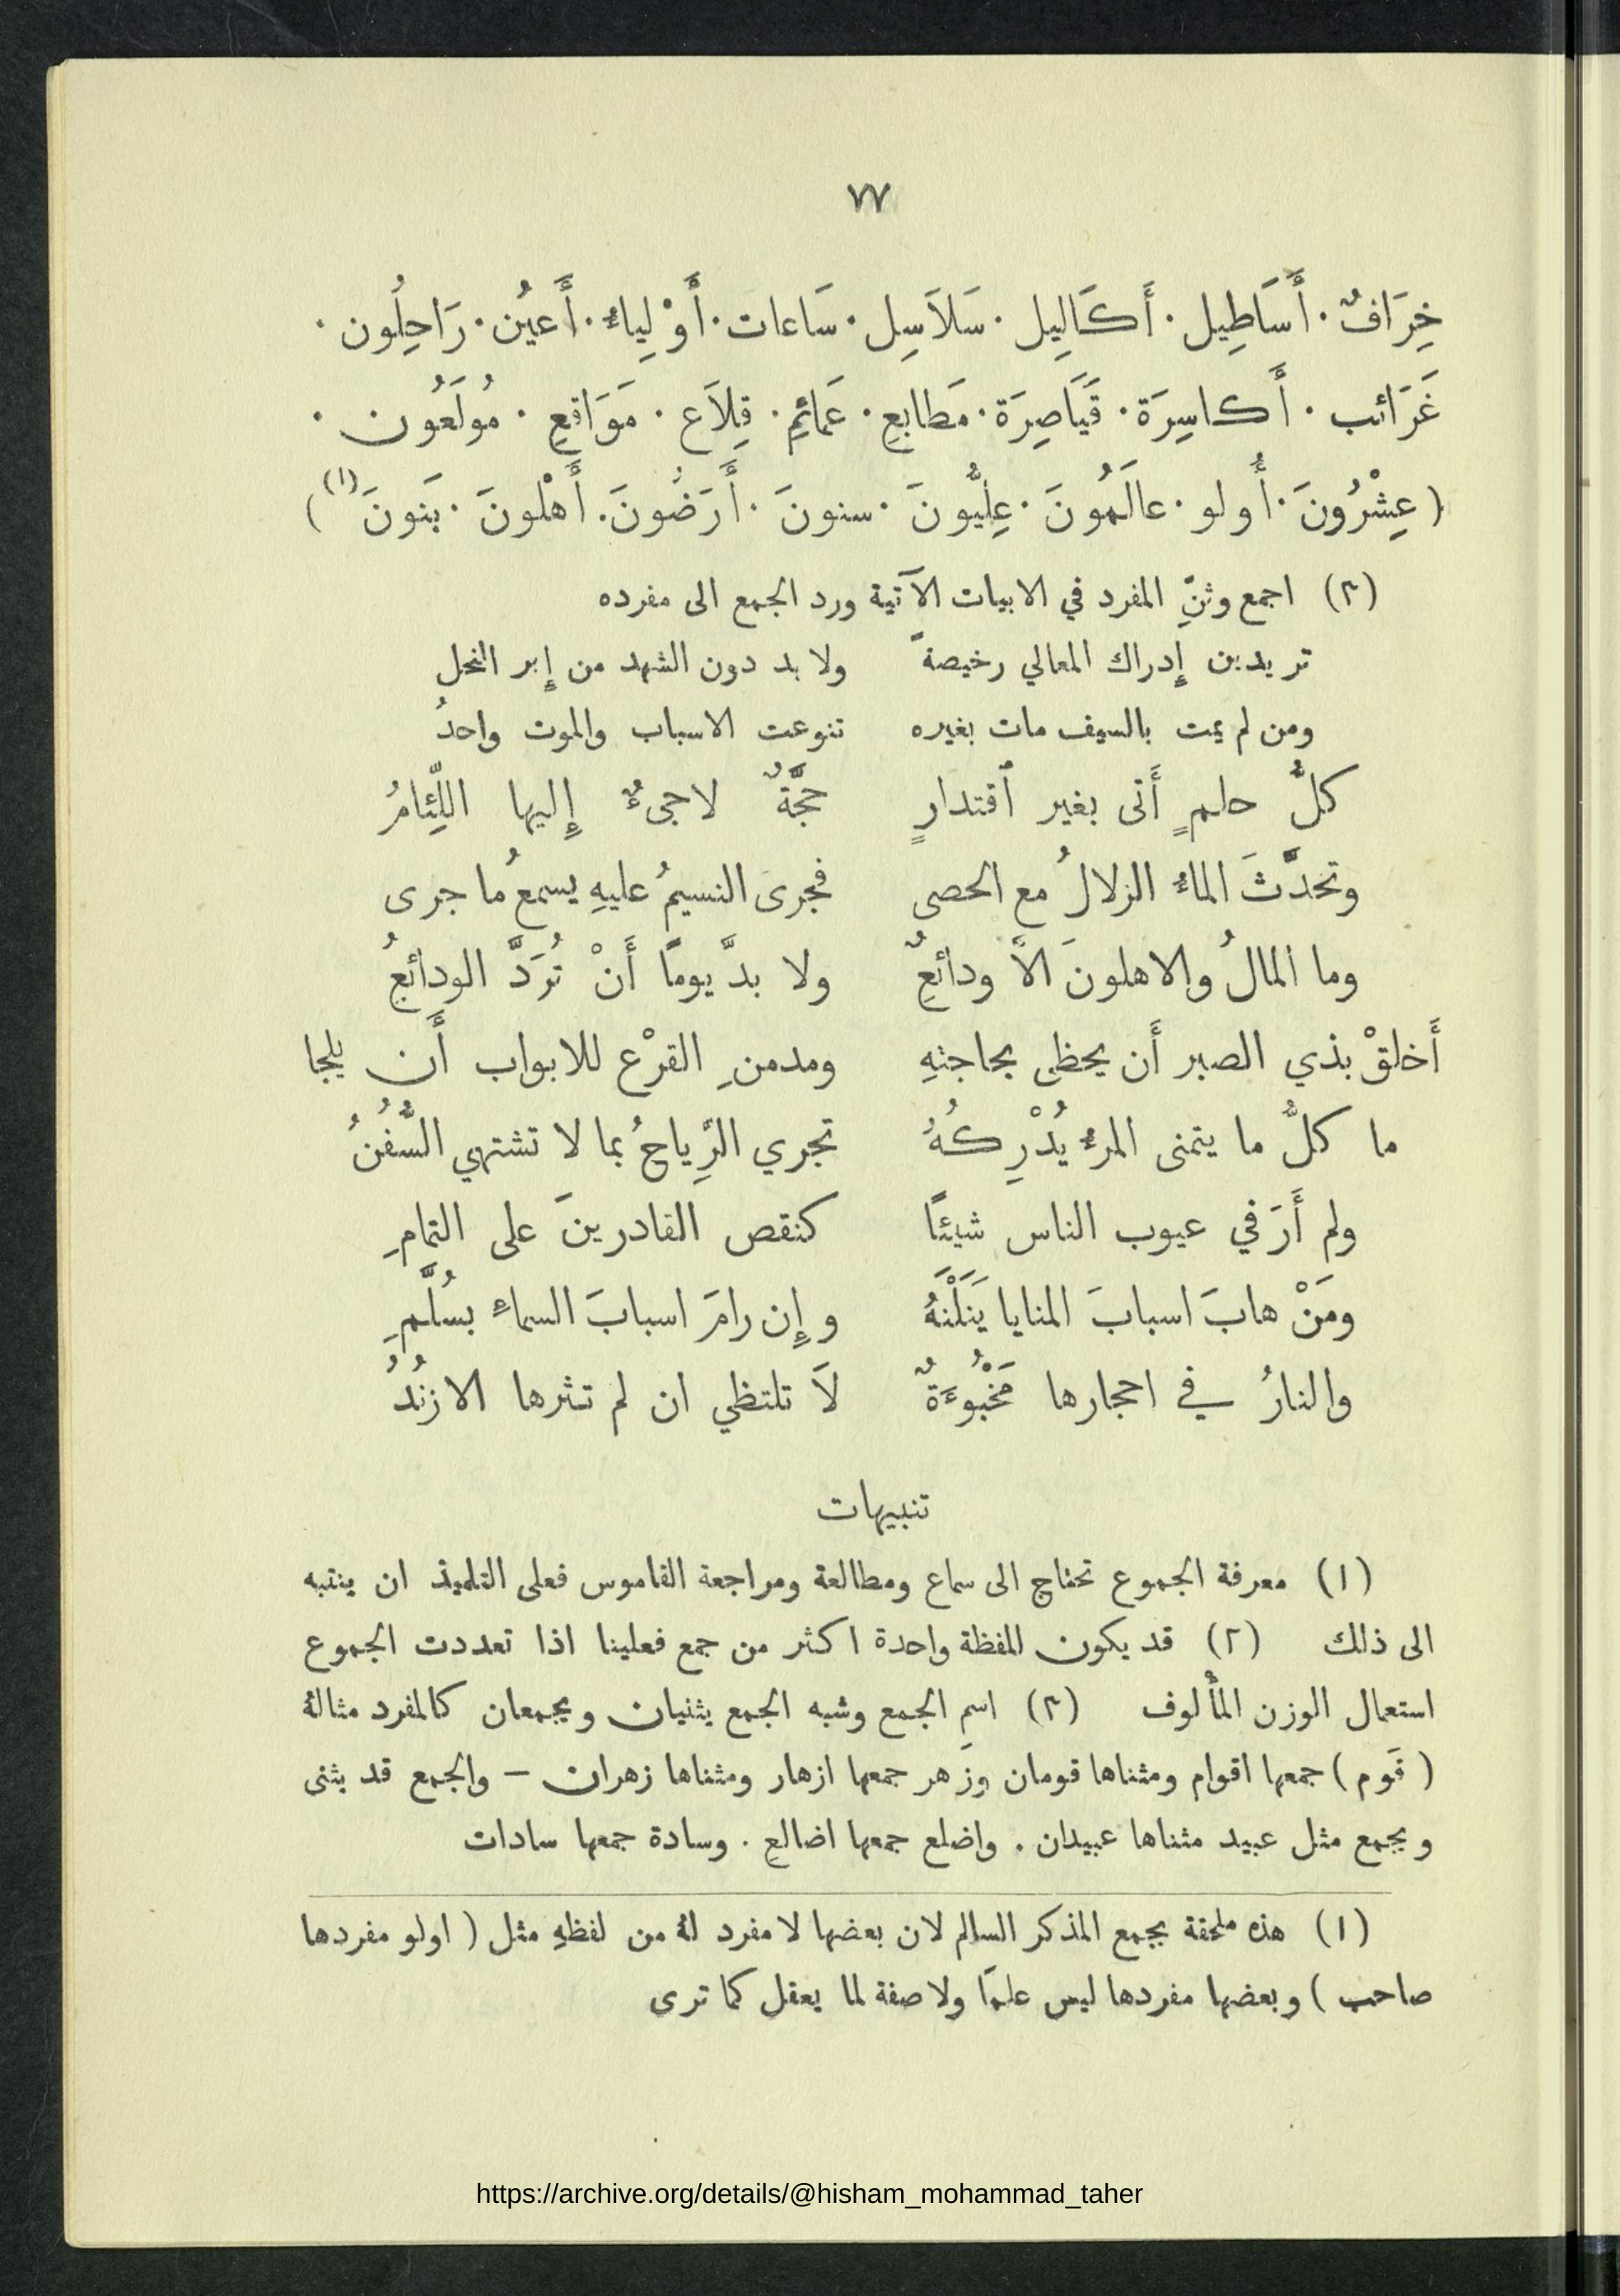 ٧٧
خِرَافٌ · أَسَاطِيل · أَكَالِيل · سَلاَسِل · سَاعات · أَوْلِياءُ · أَعيُن · رَاحِلُون ·
غَرَائب · أَكاسِرَة · قَيَاصِرَة · مَطابعِ · عَمائمِ · قِلاَع · مَوَاقعِ · مُولَعُون ·
( عِشْرُونَ · أُولو · عالَمُونَ · عِلِيُّونَ · سنونَ · أَرَضُونَ . أَهْلونَ · بَنونَ (١) )
(٣) اجمع وثنِّ المفرد في الابيات الآتية ورد الجمع الى مفرده
تريدين إِدراك المعالي رخيصةً ولا بد دون الشهد من إِبر النحل
ومن لم يمت بالسيف مات بغيره تنوعت الاسباب والموت واحدُ
كلُّ حلمٍ أَتى بغير ٱقتدارٍ حجَّةٌ لاجىءٌ إِليها اللِّئامُ
وتحدَّثَ الماءُ الزلالُ مع الحصى فجرى النسيمُ عليهِ يسمعُ ما جرى
وما المالُ والاهلونَ الاَّ ودائعٌ ولا بدَّ يوماً أَنْ تُرَدَّ الودائعُ
أَخلقْ بذي الصبر أَن يحظى بحاجتهِ ومدمنِ القرْع للابواب أَن يلجا
ما كلُّ ما يتمنى المرءُ يُدْرِكُهُ تجري الرِّياحُ بما لا تشتهي السُّفُنُ
ولم أَرَ في عيوب الناس شيئاً كنقص القادرينَ على التمامِ
ومَنْ هابَ اسبابَ المنايا يَنَلْنَهُ وإِن رامَ اسبابَ السماءِ بسُلَّمِ
والنارُ في احجارها مَخْبُوءَةٌ لاَ تلتظي ان لم تثرها الازنُدُ
تنبيهات
(١) معرفة الجموع تحتاج الى سماع ومطالعة ومراجعة القاموس فعلى التلميذ ان ينتبه
الى ذلك (٢) قد يكون للفظة واحدة اكثر من جمع فعلينا اذا تعددت الجموع
استعمال الوزن المأْلوف (٣) اسمِ الجمع وشبه الجمع يثنيان ويجمعان كالمفرد مثالهُ
( قَوم ) جمعها اقوام ومثناها قومان وزَهر جمعها ازهار ومثناها زهران – والجمع قد يثنى
ويجمع مثل عبيد مثناها عبيدان . واضلع جمعها اضالع . وسادة جمعها سادات
(١) هذه ملحقة بجمع المذكر السالم لان بعضها لا مفرد لهُ من لفظهِ مثل ( اولو مفردها
صاحب ) وبعضها مفردها ليس علماً ولا صفة لما يعقل كما ترى
https://archive.org/details/@hisham_mohammad_taher